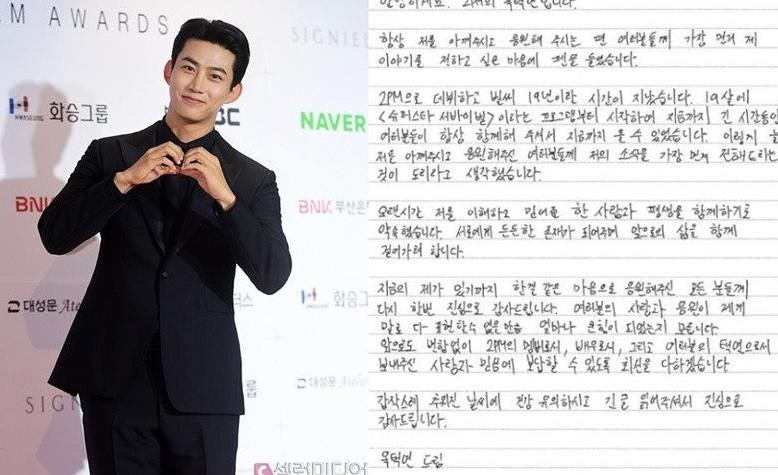 M AWARDS
SIGNIEL
HWASEUNG
화승그룹
MBC
NAVER
BNK
BNK 부산은행
대성문
화승그룹
대성문
SIGN
셀럽미디어
안녕하세요. 2PM의 옥택연입니다.
항상 저를 아껴주시고 응원해 주시는 팬 여러분들께 가장 먼저 제
이야기를 전하고 싶은 마음에 펜을 들었습니다.
2PM으로 데뷔하고 벌써 19년이란 시간이 지났습니다. 19살에
<슈퍼스타 서바이벌>이라는 프로그램부터 시작하여 지금까지 긴 시간동안
여러분들이 항상 함께해 주셔서 지금까지 올 수 있었습니다. 이렇게 늘
저를 아껴주시고 응원해주신 여러분들께 저의 소식을 가장 먼저 전해드리는
것이 도리라고 생각했습니다.
오랜시간 저를 이해하고 믿어준 한 사람과 평생을 함께하기로
약속했습니다. 서로에게 든든한 존재가 되어주며 앞으로의 삶을 함께
걸어가려 합니다.
지금의 제가 있기까지 한결 같은 마음으로 응원해주신 모든 분들께
다시 한번 진심으로 감사드립니다. 여러분의 사랑과 응원이 제게
말로 다 표현할수 없을 만큼 얼마나 큰힘이 되었는지 모릅니다
앞으로도 변함없이 2PM의 멤버로서, 배우로서, 그리고 여러분의 택연으로서
보내주신 사랑과 믿음에 보답할 수 있도록 최선을 다하겠습니다
갑작스레 추워진 날씨에 건강 유의하시고 긴글 읽어주셔서 진심으로
감사드립니다.
옥택연 드림